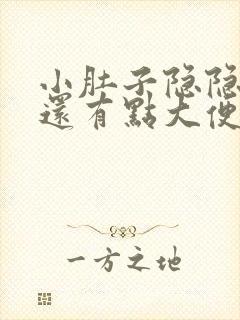 小肚子隐隐
還有點大便
一方之地